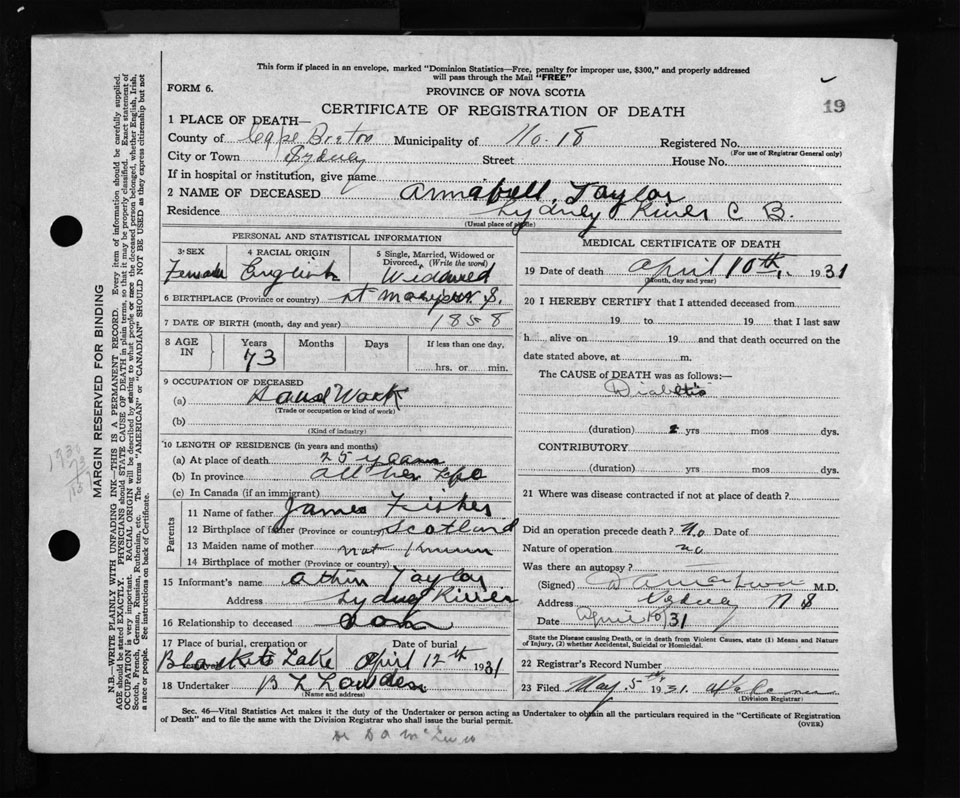 This form if placed in an envelope, marked "Dominion Statistics—Free, penalty for improper use, $300," and properly addressed
will pass through the Mail "FREE"
FORM 6.
PROVINCE OF NOVA SCOTIA
19
CERTIFICATE OF REGISTRATION OF DEATH
1 PLACE OF DEATH—
County of Cape Breton Municipality of No. 18 Registered No.
(For use of Registrar General only)
City or Town Sydney Street House No.
If in hospital or institution, give name
2 NAME OF DECEASED Annabell Taylor
Residence Sydney River C B.
(Usual place of abode)
PERSONAL AND STATISTICAL INFORMATION
3 SEX 4 RACIAL ORIGIN 5 Single, Married, Widowed or Divorced, (Write the word)
Female English Widowed
6 BIRTHPLACE (Province or country) St Marys N. S.
7 DATE OF BIRTH (month, day and year) 1858
8 AGE IN Years Months Days If less than one day,
73 hrs. or min.
9 OCCUPATION OF DECEASED
(a) Work
(Trade or occupation or kind of work)
(b)
(Kind of industry)
10 LENGTH OF RESIDENCE (in years and months)
(a) At place of death 25 years
(b) In province all her life
(c) In Canada (if an immigrant)
Parents
11 Name of father James Fisher
12 Birthplace of father (Province or country) Scotland
13 Maiden name of mother not known
14 Birthplace of mother (Province or country)
15 Informant's name Taylor
Address Sydney River
16 Relationship to deceased son
17 Place of burial, cremation or Date of burial
Lake April 12th 1931
18 Undertaker B L
(Name and address)
MEDICAL CERTIFICATE OF DEATH
19 Date of death April 10th, 1931
(Month, day and year)
20 I HEREBY CERTIFY that I attended deceased from
19 to 19 that I last saw
h alive on 19 and that death occurred on the
date stated above, at m.
The CAUSE of DEATH was as follows:—
Diabetis
(duration) yrs mos dys.
CONTRIBUTORY
(duration) yrs mos dys.
21 Where was disease contracted if not at place of death?
Did an operation precede death? No Date of
Nature of operation no
Was there an autopsy?
(Signed) M.D.
Address Sydney N S
April 10/31
State the Disease causing Death, or in death from Violent Causes, state (1) Means and Nature
of Injury, (2) whether Accidental, Suicidal or Homicidal.
22 Registrar's Record Number
23 Filed May 5th 1931.
(Division Registrar)
Sec. 46—Vital Statistics Act makes it the duty of the Undertaker or person acting as Undertaker to obtain all the particulars required in the "Certificate of Registration
of Death" and to file the same with the Division Registrar who shall issue the burial permit.
(OVER)
Dr D A
MARGIN RESERVED FOR BINDING
N.B.—WRITE PLAINLY WITH UNFADING INK—THIS IS A PERMANENT RECORD. Every item of information should be carefully supplied.
AGE should be stated EXACTLY. PHYSICIANS should STATE CAUSE OF DEATH in plain terms, so that it may be properly classified. Exact statement of
OCCUPATION is very important. RACIAL ORIGIN will be described by stating to what people or race the deceased person belonged, whether English, Irish,
Scotch, French, German, Russian, Ruthenian, etc. The terms "AMERICAN" or "CANADIAN" SHOULD NOT BE USED as they express citizenship but not
a race or people. See instructions on back of Certificate.